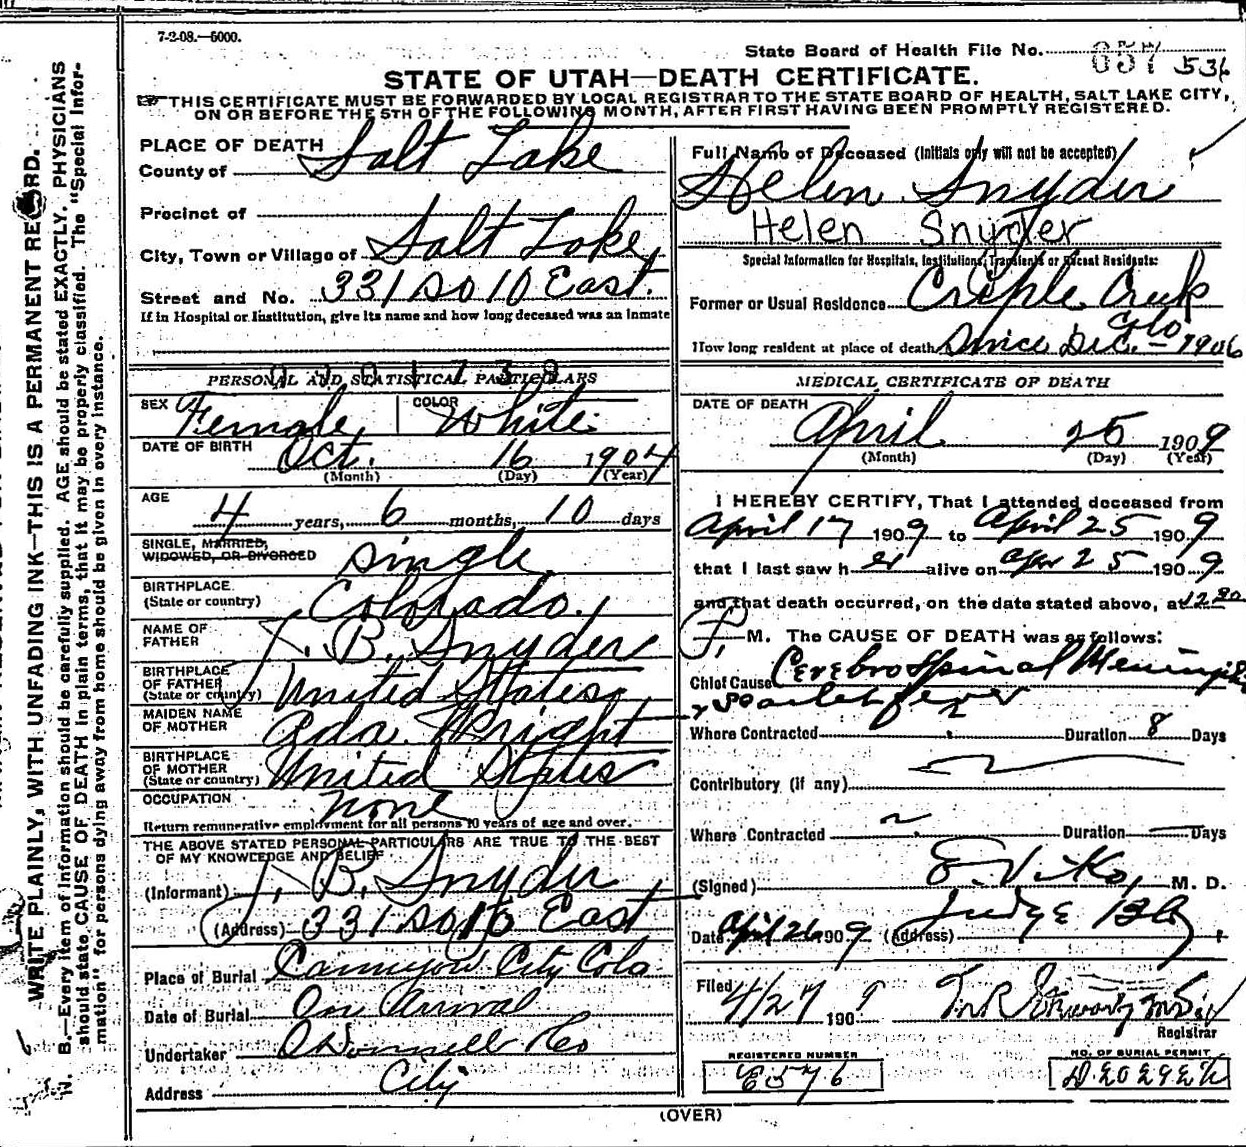 7-2-08.—5000.
State Board of Health File No. 857 536
STATE OF UTAH—DEATH CERTIFICATE.
THIS CERTIFICATE MUST BE FORWARDED BY LOCAL REGISTRAR TO THE STATE BOARD OF HEALTH, SALT LAKE CITY,
ON OR BEFORE THE 5TH OF THE FOLLOWING MONTH, AFTER FIRST HAVING BEEN PROMPTLY REGISTERED.
WRITE PLAINLY, WITH UNFADING INK—THIS IS A PERMANENT RECORD.
N. B.—Every item of information should be carefully supplied. AGE should be stated EXACTLY. PHYSICIANS
should state CAUSE OF DEATH in plain terms, that it may be properly classified. The "Special Infor-
mation" for persons dying away from home should be given in every instance.
PLACE OF DEATH
County of Salt Lake
Precinct of
City, Town or Village of Salt Lake
Street and No. 331 So 10 East.
If in Hospital or Institution, give its name and how long deceased was an Inmate
PERSONAL AND STATISTICAL PARTICULARS
SEX Female COLOR White
DATE OF BIRTH Oct. 16 1904
(Month) (Day) (Year)
AGE
4 years, 6 months, 10 days
SINGLE, MARRIED,
WIDOWED, OR DIVORCED single
BIRTHPLACE
(State or country) Colorado
NAME OF
FATHER J. B. Snyder
BIRTHPLACE
OF FATHER
(State or country) United States
MAIDEN NAME
OF MOTHER Ada Wright
BIRTHPLACE
OF MOTHER
(State or country) United States
OCCUPATION none
Return remunerative employment for all persons 10 years of age and over.
THE ABOVE STATED PERSONAL PARTICULARS ARE TRUE TO THE BEST
OF MY KNOWLEDGE AND BELIEF
(Informant) J. B. Snyder
(Address) 331 So 10 East
Place of Burial Cannyon City Colo
Date of Burial On Arrival
Undertaker O'Donnell & Co
Address City
Full Name of Deceased (Initials only will not be accepted)
Helen Snyder
Helen Snyder
Special Information for Hospitals, Institutions, Transients or Recent Residents:
Former or Usual Residence Cripple Creek
Colo
How long resident at place of death Since Dec. 1906
MEDICAL CERTIFICATE OF DEATH
DATE OF DEATH
April 25 1909
(Month) (Day) (Year)
I HEREBY CERTIFY, That I attended deceased from
April 17 1909 to April 25 1909
that I last saw her alive on Apr 25 1909
and that death occurred, on the date stated above, at 12.30
P. M. The CAUSE OF DEATH was as follows:
Chief Cause Cerebro Spinal Meningitis
& Scarlet fever
Where Contracted ? Duration 8 Days
Contributory (if any)
Where Contracted Duration — Days
(Signed) E. Viko, M. D.
Date April 26 1909 (Address) Judge Bldg,
Filed
4/27 1909
Registrar
REGISTERED NUMBER
E576
NO. OF BURIAL PERMIT
(OVER)